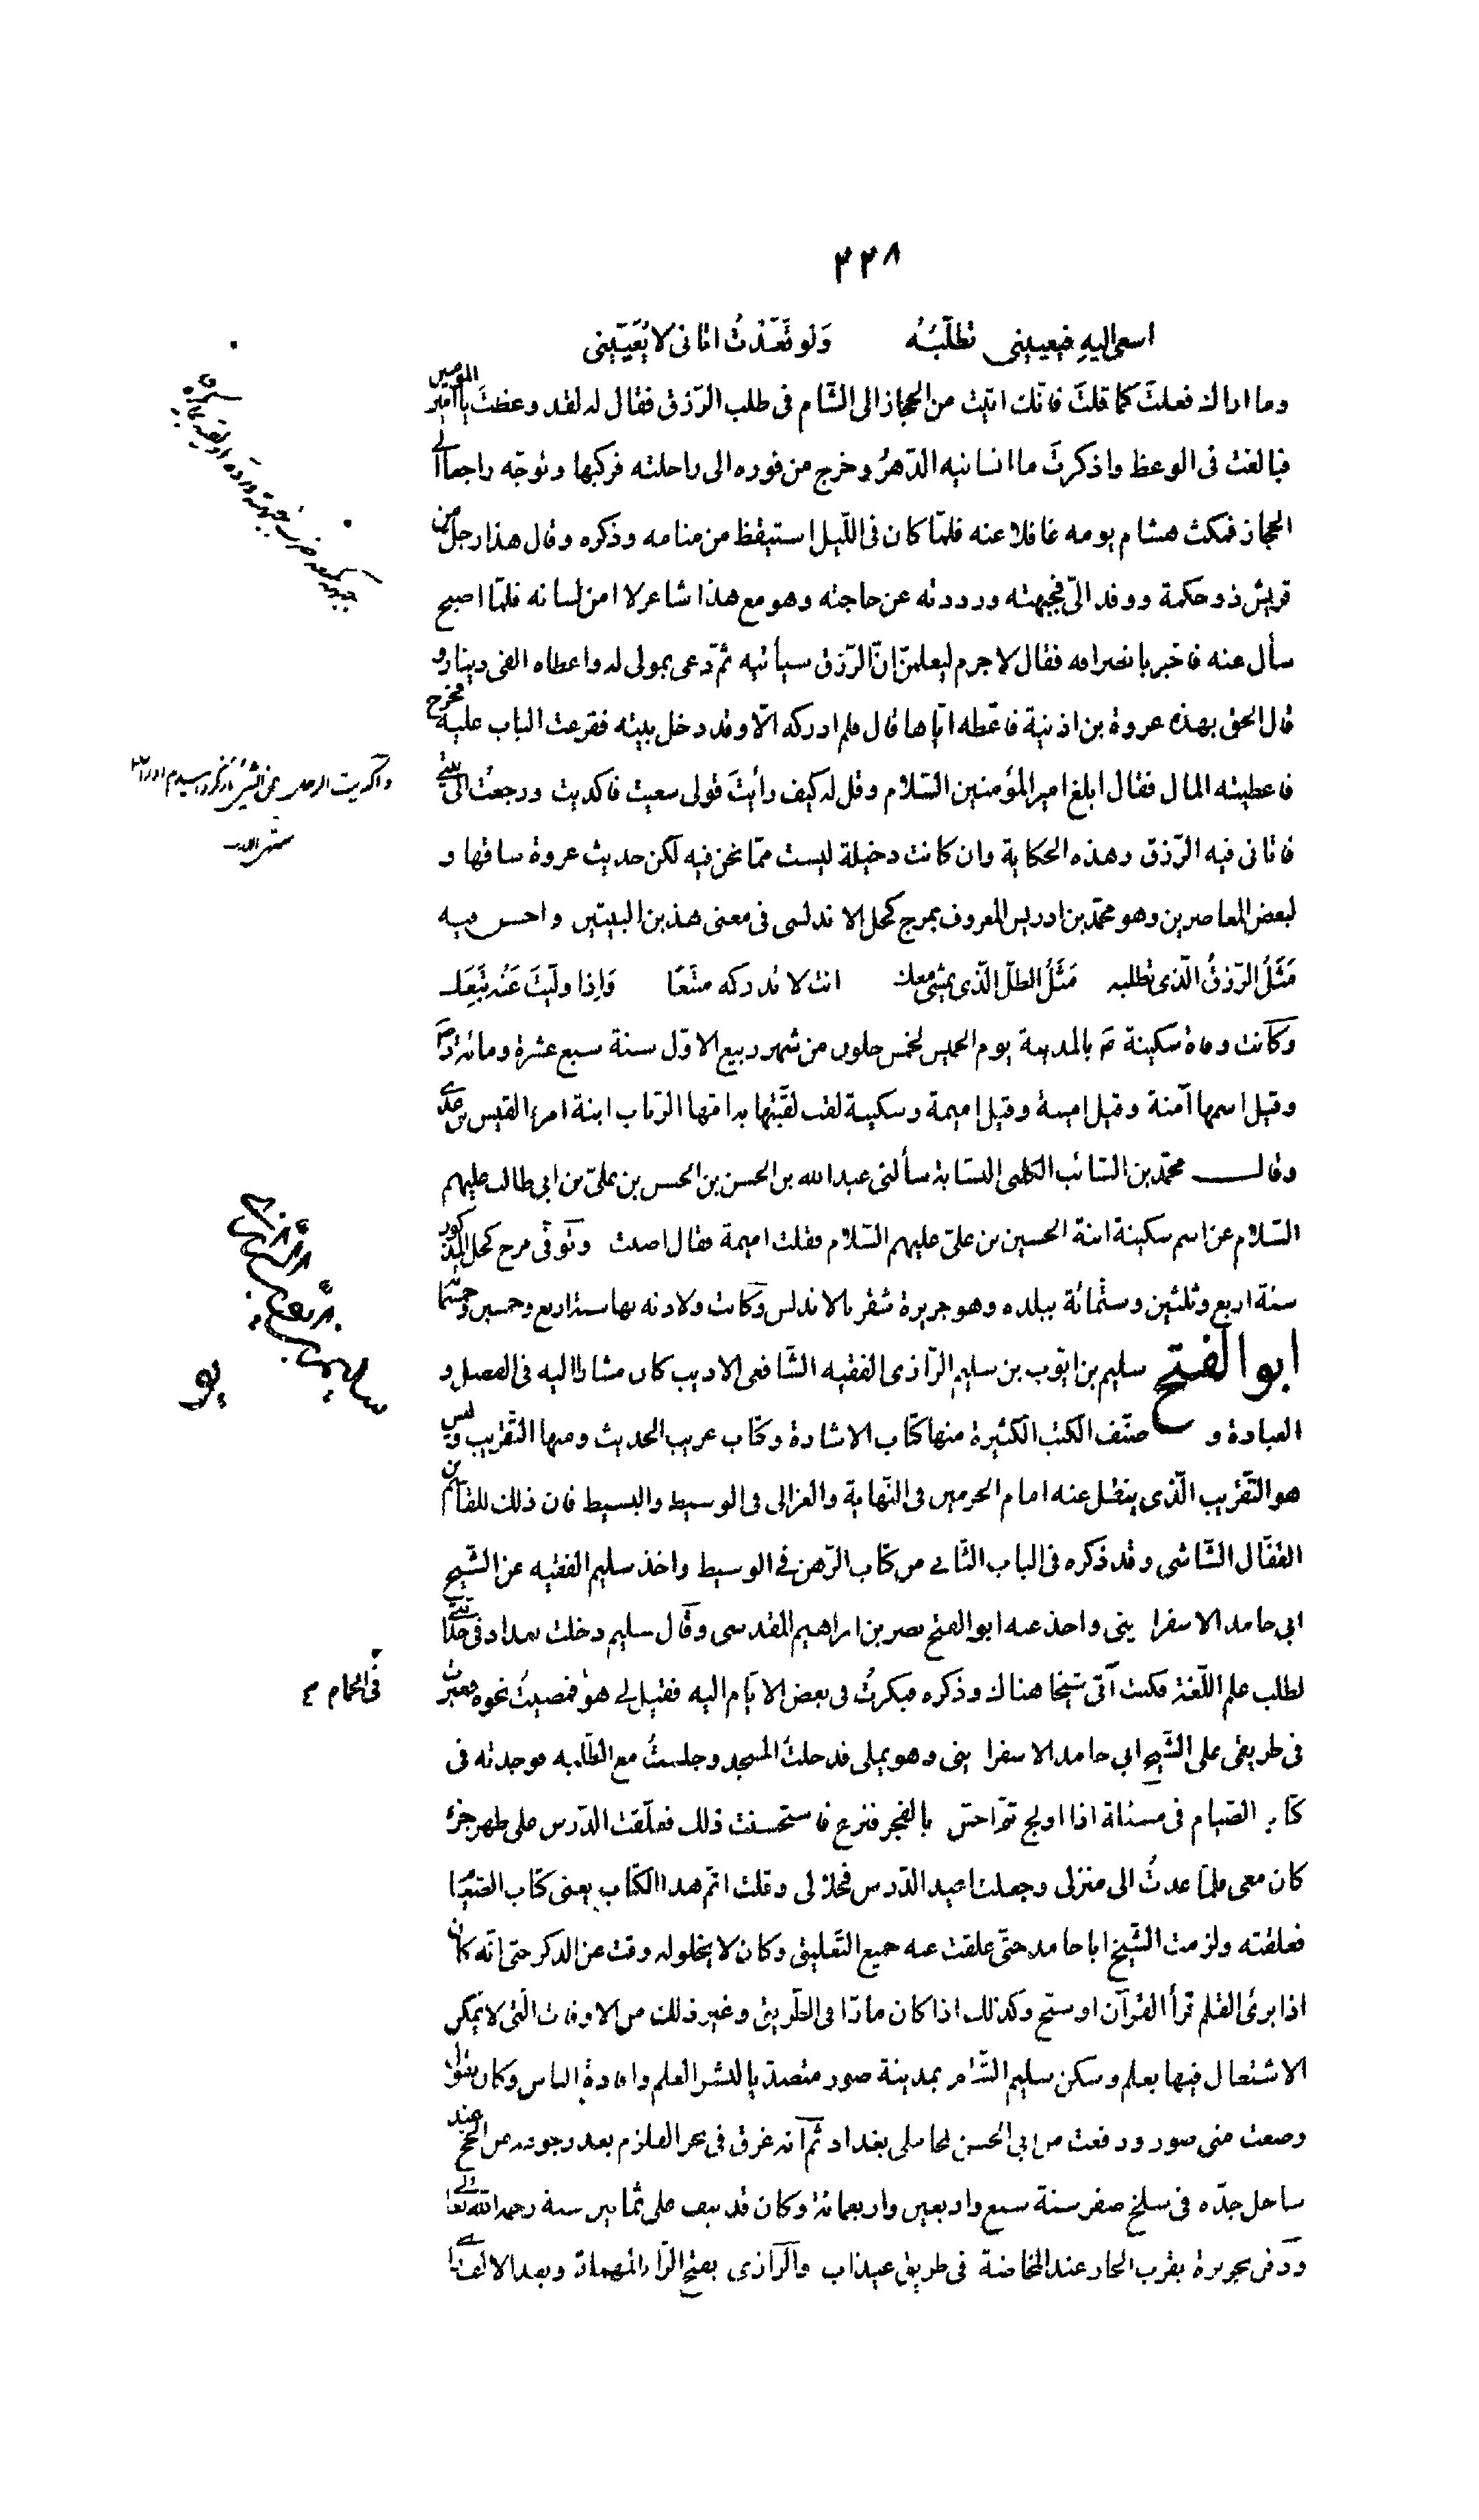 ٢٢٨
اسعى اليه فيعييني تطلّبُه ولو قعدتُ اتاني لا يُعَيّيني
وما اراك فعلتَ كما قلتَ فانك اتيت من الحجاز الى الشّام في طلب الرّزق فقال له لقد وعظتَ يا امير المؤمنين
فبالغت في الوعظ واذكرتَ ما انسانيه الدّهرُ وخرج من فوره الى راحلته فركبها وتوجّه راجعا الى
الحجاز فمكث هشام يومه غافلا عنه فلمّا كان في اللّيل استيقظ من منامه وذكره وقال هذا رجل من
قريش ذو حكمة ووفد الىّ فجبهته ورددته عن حاجته وهو مع هذا شاعر لا امن لسانه فلمّا اصبح
سأل عنه فاخبر بانصرافه فقال لا جرم ليعلمنّ انّ الرّزق سيأتيه ثمّ دعى بمولى له واعطاه الفى دينار و
قال الحق بهذه عروة بن اذنية فاعطه ايّاها قال فلم ادركه الّا وقد دخل بيته فقرعت الباب عليه فخرج
فاعطيته المال فقال ابلغ امير المؤمنين السّلام وقل له كيف رأيتَ قولى سعيت فاكديت ورجعتُ الى بيتى
فاتانى فيه الرّزق وهذه الحكاية وان كانت دخيلة ليست ممّا نحن فيه لكن حديث عروة ساقها و
لبعض المعاصرين وهو محمّد بن ادريس المعروف بمرج كحل الاندلسى فى معنى هذين البيتين واحسن فيه
مَثَلُ الرّزقُ الّذى تطلبه مَثَلُ الظلّ الّذى يمشى معك انت لا تدركه متّبعًا وَاِذا ولّيتَ عَنْه تَبِعَك
وكانت وفاة سكينة بالمدينة يوم الخميس لخمس خلون من شهر ربيع الاوّل سنة سبع عشرة ومائة
وقيل اسمها آمنة وقيل امينة وقيل اميمة وسكينة لقب لقّبتها به امّها الرّباب ابنة امرء القيس بن عدى
وقال محمّد بن السّائب الكلبى النسّابة سألنى عبد الله بن الحسن بن الحسن بن علىّ بن ابى طالب عليهم
السّلام عن اسم سكينة ابنة الحسين بن علىّ عليهم السّلام فقلت اميمة فقال اصبت وتوفّى مرج كحل المذكور
سنة اربع وثلثين وستّمائة ببلده وهو جزيرة شقر بالاندلس وكانت ولادته بها سنة اربع وخمسين وخمسمائة
ابو الفتح سليم بن ايّوب بن سليم الرّازى الفقيه الشّافعى الاديب كان مشارا اليه فى الفضل و
العبادة و صنّف الكتب الكثيرة منها كتاب الاشارة وكتاب غريب الحديث ومنها التّقريب وليس
هو التّقريب الّذى ينقل عنه امام الحرمين فى النّهاية والغزالى فى الوسيط والبسيط فان ذلك للقاسم بن
القفّال الشّاشى وقد ذكره فى الباب الثّانى من كتاب الرّهن فى الوسيط واخذ سليم الفقيه عن الشّيخ
ابى حامد الاسفراينى واخذ عنه ابو الفتح نصر بن ابراهيم المقدسى وقال سليم دخلت بغداد فى حداثتى
لطلب علم اللّغة فكنت آتى شيخا هناك وذكره فبكرتُ فى بعض الايّام اليه فقيل لى هو فمضيتُ نحوه فعبرت
فى الحمام
فى طريقى على الشّيخ ابى حامد الاسفراينى وهو يملى فدخلتُ المسجد وجلستُ مع الطّلبه فوجدته فى
كتاب الصّيام فى مسئلة اذا اولج ثمّ احسّ بالفجر فنزع فاستحسنت ذلك فعلّقت الدّرس على ظهر جزء
كان معى فلمّا عدتُ الى منزلى وجعلت اعيد الدّرس فحلا لى وقلت اتمّ هذا الكتاب يعنى كتاب الصّيام
فعلقته ولزمت الشّيخ ابا حامد حتّى علقت عنه جميع التّعليق وكان لا يخلو له وقت عن الذكر حتى انّه كان
اذا برئ القلم قرأ القرآن او سبّح وكذلك اذا كان مارّا فى الطّريق وغير ذلك من الاوقات الّتى لا يمكن
الاشتغال فيها بعلم وسكن سليم الشّام بمدينة صور متصدّيا لنشر العلم وافادة الناس وكان يقول
وضعت منى صور ورفعت من ابى الحسن المحاملى بغداد ثمّ انه غرق فى بحر القلزم بعد رجوعه من الحجّ عند
ساحل جدّه فى سلخ صفر سنة سبع واربعين واربعمائة وكان قد نيف على ثمانين سنة رحمه الله تعالى
ودفن بجزيرة بقرب الجار عند المخاضة فى طريق عيذاب والرّازى بفتح الرّاء المهملة وبعد الالف